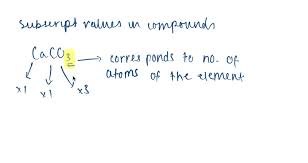 Subscript values in compounds
CaCO₃ → corresponds to no. of
atoms of the element
x1 x1 x3